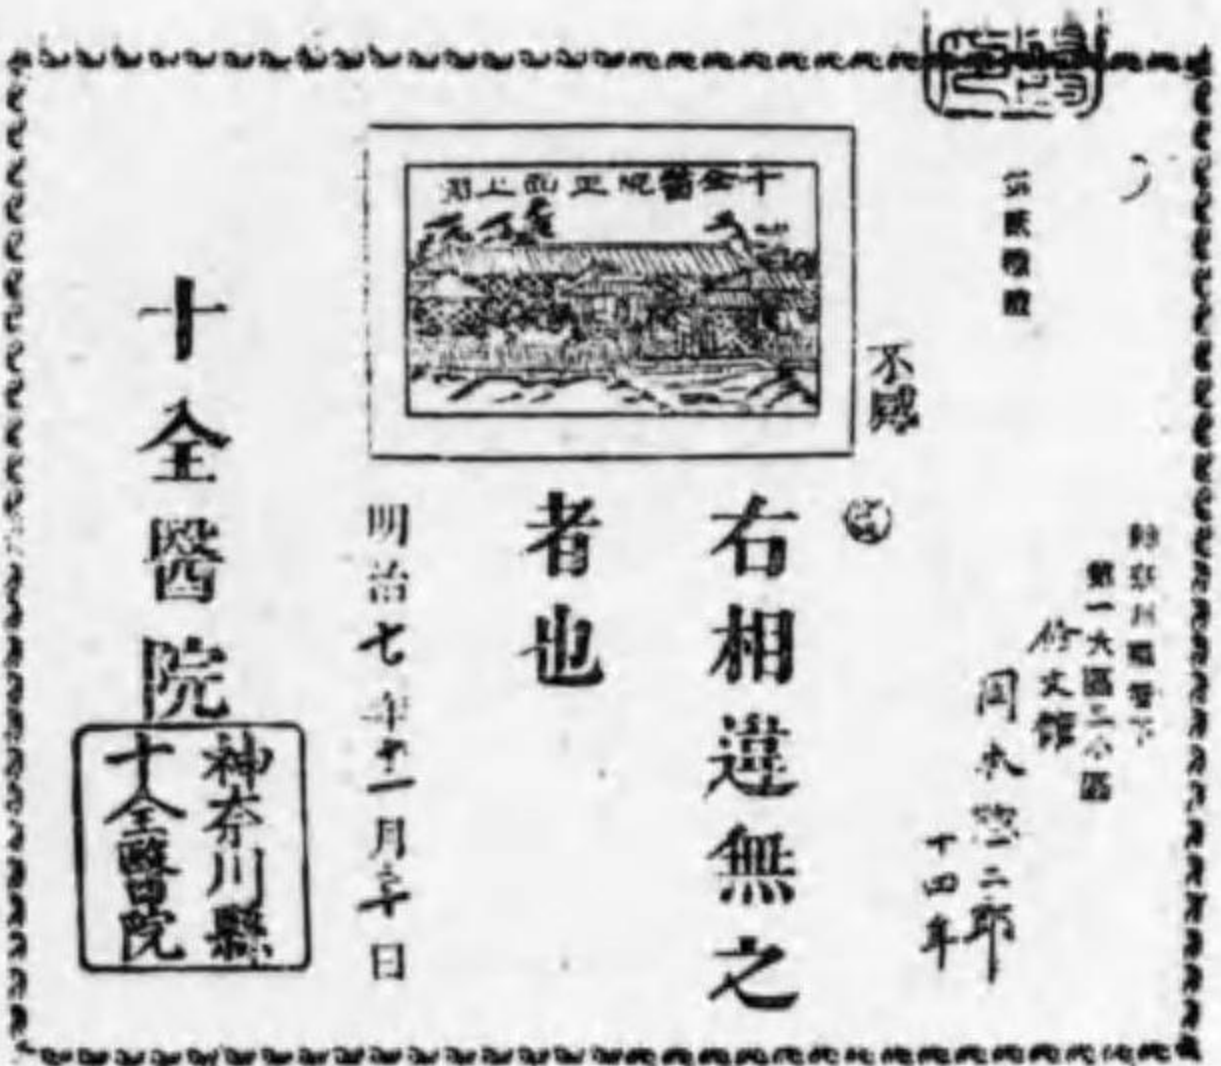 神奈川縣管下
第一大區二小區
修文館
岡本惣二郎
十四年
種痘
不感
右相違無之
者也
十全醫院正面之圖
明治七年十一月日
十全醫院
神奈川縣
十全醫院